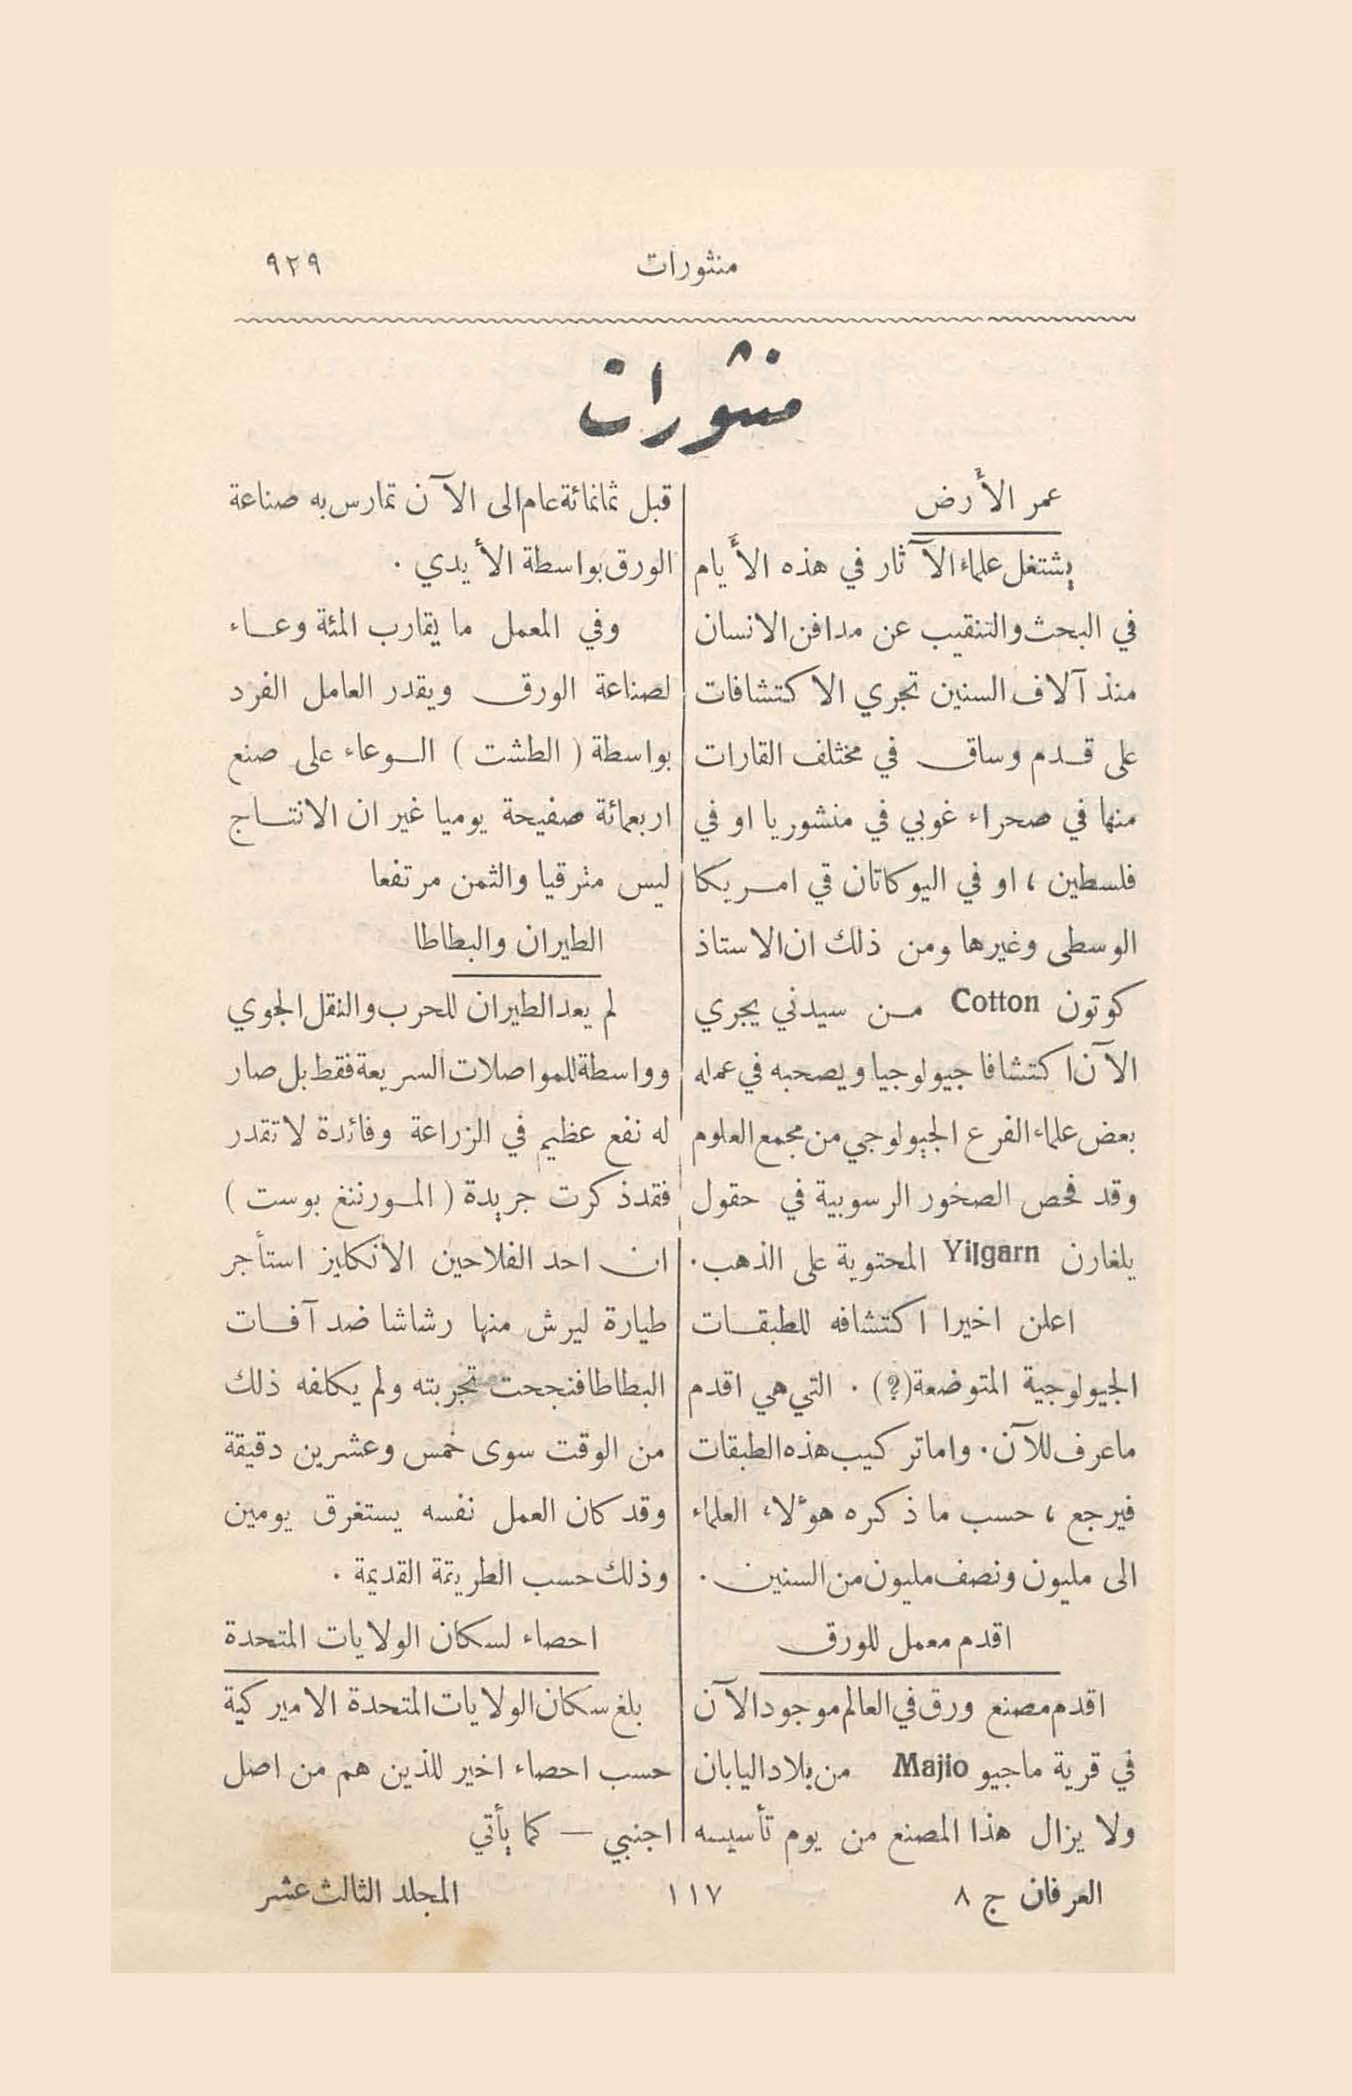 منثورات
٩٢٩
منثورات
عمر الأرض
يشتغل علماء الآثار في هذه الأيام
في البحث والتنقيب عن مدافن الانسان
منذ آلاف السنين تجري الاكتشافات
على قدم وساق في مختلف القارات
منها في صحراء غوبي في منشوريا او في
فلسطين ، او في اليوكاتان قي امريكا
الوسطى وغيرها ومن ذلك ان الاستاذ
كوتون Cotton من سيدني يجري
الآن اكتشافا جيولوجيا ويصحبه في عمله
بعض علماء الفرع الجيولوجي من مجمع العلوم
وقد فحص الصخور الرسوبية في حقول
يلغارن Yilgarn المحتوية على الذهب.
اعلن اخيرا اكتشافه للطبقات
الجيولوجية المتوضعة(?) . التي هي اقدم
ما عرف للآن. واما تركيب هذه الطبقات
فيرجع ، حسب ما ذكره هؤلاء العلماء
الى مليون ونصف مليون من السنين .
اقدم معمل للورق
اقدم مصنع ورق في العالم موجود الآن
في قرية ماجيو Majio من بلاد اليابان
ولا يزال هذا المصنع من يوم تأسيسه
قبل ثمانمائة عام الى الآن تمارس به صناعة
الورق بواسطة الأيدي .
وفي المعمل ما يقارب المئة وعاء
لصناعة الورق ويقدر العامل الفرد
بواسطة ( الطشت ) الوعاء على صنع
اربعمائة صفيحة يوميا غير ان الانتاج
ليس مترقيا والثمن مرتفعا
الطيران والبطاطا
لم يعد الطيران للحرب والنقل الجوي
وواسطة للمواصلات السريعة فقط بل صار
له نفع عظيم في الزراعة وفائدة لا تقدر
فقد ذكرت جريدة ( المورننغ بوست )
ان احد الفلاحين الانكليز استأجر
طيارة ليرش منها رشاشا ضد آفات
البطاطا فنجحت تجربته ولم يكلفه ذلك
من الوقت سوى خمس وعشرين دقيقة
وقد كان العمل نفسه يستغرق يومين
وذلك حسب الطريقة القديمة .
احصاء لسكان الولايات المتحدة
بلغ سكان الولايات المتحدة الاميركية
حسب احصاء اخير للذين هم من اصل
اجنبي — كما يأتي
العرفان ج ٨
١١٧
المجلد الثالث عشر